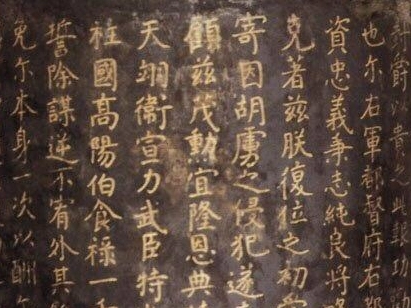 爵以貴之此報功
也尔右軍都督府右都
資忠義秉志純良將略
克著兹朕復位之初
寄因胡虜之侵犯遂
顧兹茂勲宜隆恩典
天翊衛宣力武臣特
柱國高陽伯食禄一
誓除謀逆不宥外其
免尔本身一次以酬